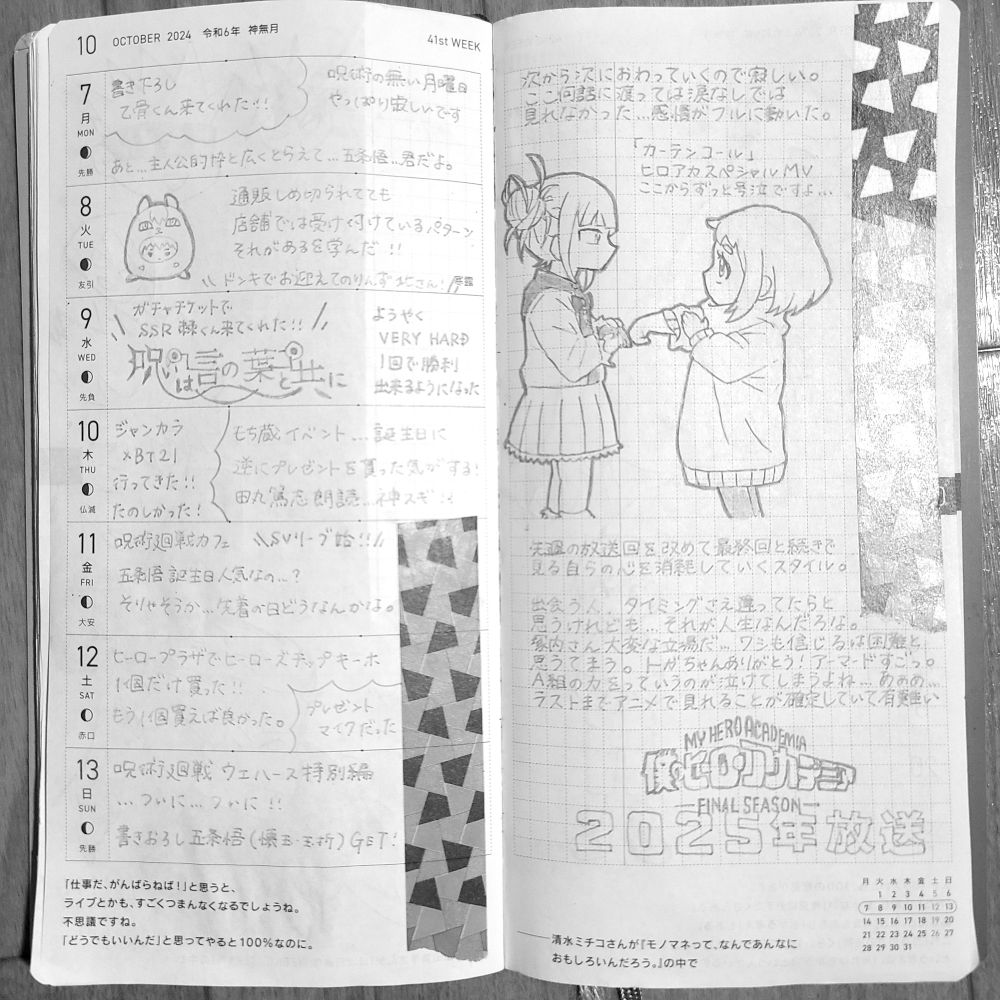 10 OCTOBER 2024 令和6年 神無月
41st WEEK
7
月
MON
先勝
書き下ろし
乙骨くん来てくれた!!
呪術の無い月曜日
やっぱり寂しいです
あと…主人公的枠と広くとらえて…五条悟…君だよ。
8
火
TUE
友引
通販しめ切られてても
店舗では受け付けているパターン
それがあるを学んだ!!
ドンキでお迎えてのりんず
9
水
WED
先負
ガチャチケットで
SSR 棘くん来てくれた!!
呪いは言の葉と共に
ようやく
VERY HARD
1回で勝利
出来るようになった
10
木
THU
仏滅
ジャンカラ
×BT21
行ってきた!!
たのしかった!
もち蔵イベント…誕生日に
逆にプレゼントを貰った気がする!
田丸篤志 朗読…神スギ!!
11
金
FRI
大安
呪術廻戦カフェ \\SVリーグ始!!//
五条悟誕生日人気なの…?
そりゃそうか…先着の日どうなんかな。
12
土
SAT
赤口
ヒーロープラザでヒーローズチップキーホ
1個だけ買った!!
もう1個買えば良かった。
プレゼント
マイクだった
13
日
SUN
先勝
呪術廻戦 ウエハース特別編
…ついに…ついに!!
書きおろし五条悟(懐玉・玉折)GET!
「仕事だ、がんばらねば!」と思うと、
ライブとかも、すごくつまんなくなるでしょうね。
不思議ですね。
「どうでもいいんだ」と思ってやると100%なのに。
次から次におわっていくので寂しい。
ここ何話に渡っては涙なしでは
見れなかった…感情がフルに動いた。
「カーテンコール」
ヒロアカスペシャルMV
ここからずっと号泣ですよ…
先週の放送回を改めて最終回と続きで
見る自らの心を消耗していくスタイル。
出会う人、タイミングさえ違ってたらと
思うけれども…それが人生なんだろな。
塚内さん大変な立場だ…ワシも信じるは困難と
思うてまう。トガちゃんありがとう!アーマードすごっ。
A組の力をっていうのが泣けてしまうよね…あぁぁ…
ラストまでアニメで見れることが確定していて有難い
MY HERO ACADEMIA
僕のヒーローアカデミア
FINAL SEASON
2025年放送
月 火 水 木 金 土 日
1 2 3 4 5 6
7 8 9 10 11 12 13
14 15 16 17 18 19 20
21 22 23 24 25 26 27
28 29 30 31
──清水ミチコさんが『モノマネって、なんであんなに
おもしろいんだろう。』の中で